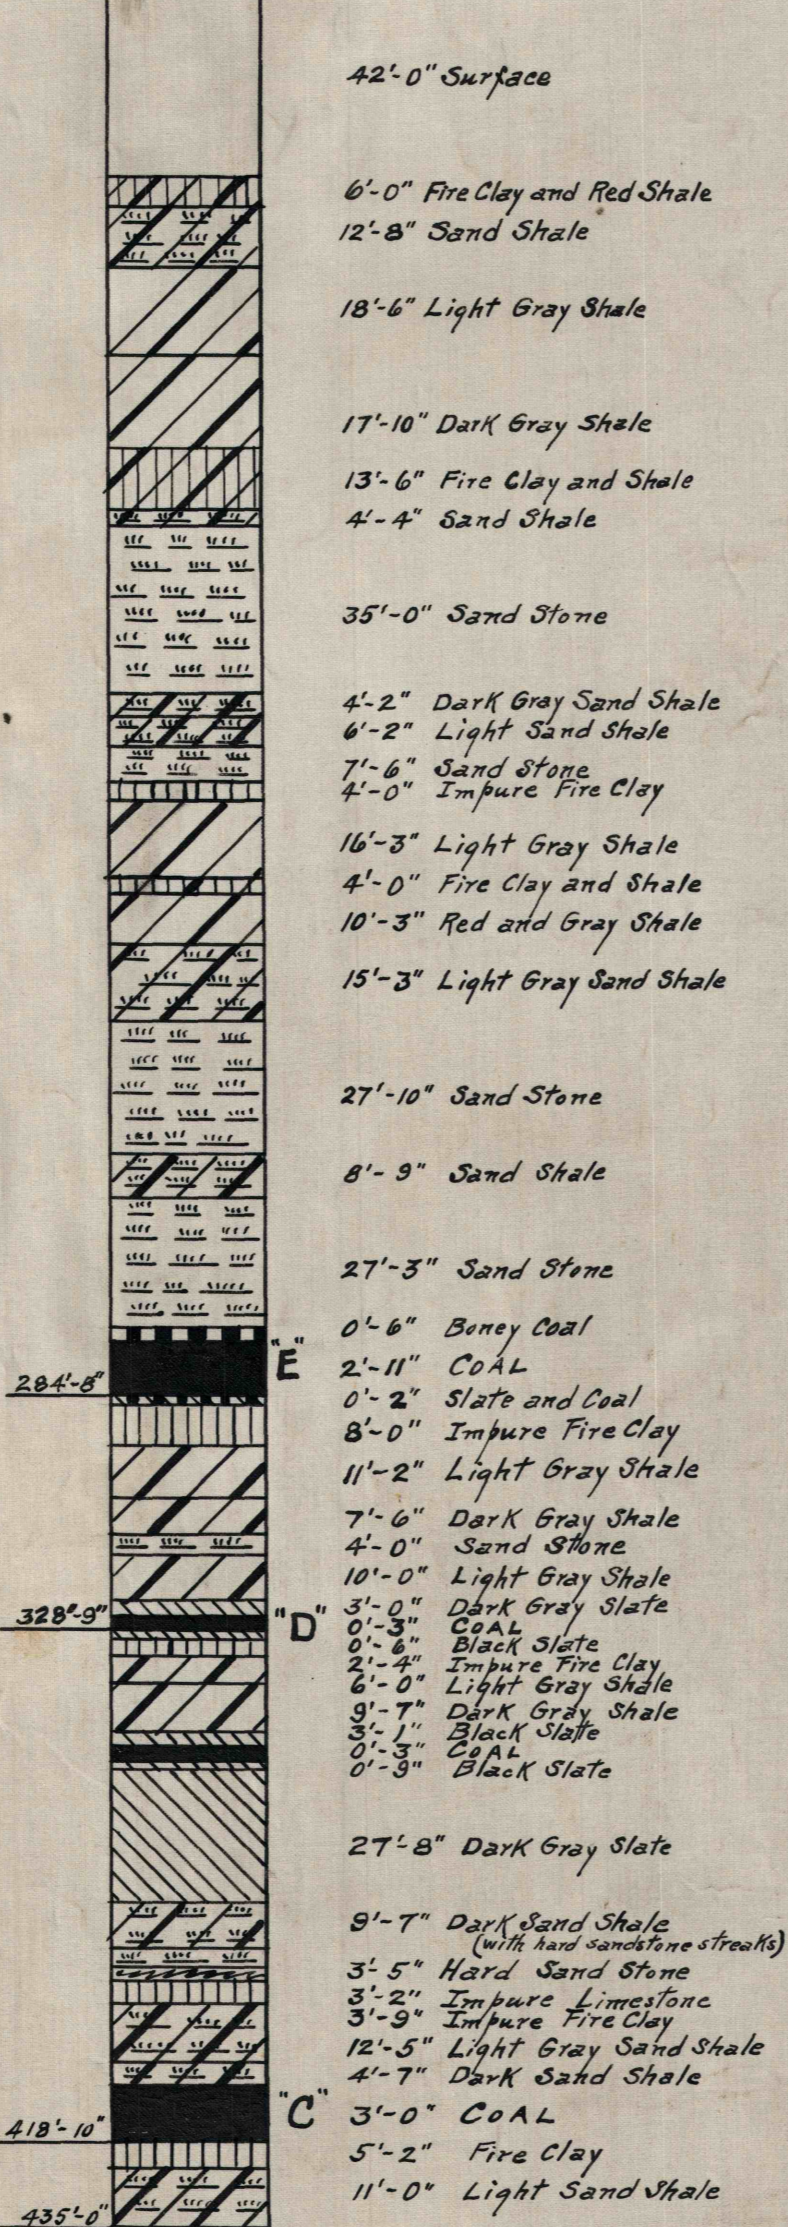 42'-0" Surface
6'-0" Fire Clay and Red Shale
12'-8" Sand Shale
18'-6" Light Gray Shale
17'-10" Dark Gray Shale
13'-6" Fire Clay and Shale
4'-4" Sand Shale
35'-0" Sand Stone
4'-2" Dark Gray Sand Shale
6'-2" Light Sand Shale
7'-6" Sand Stone
4'-0" Impure Fire Clay
16'-3" Light Gray Shale
4'-0" Fire Clay and Shale
10'-3" Red and Gray Shale
15'-3" Light Gray Sand Shale
27'-10" Sand Stone
8'-9" Sand Shale
27'-3" Sand Stone
0'-6" Boney Coal
"E" 2'-11" COAL
284'-8" 0'-2" Slate and Coal
8'-0" Impure Fire Clay
11'-2" Light Gray Shale
7'-6" Dark Gray Shale
4'-0" Sand Stone
10'-0" Light Gray Shale
3'-0" Dark Gray Slate
328'-9" "D" 0'-3" COAL
0'-6" Black Slate
2'-4" Impure Fire Clay
6'-0" Light Gray Shale
9'-7" Dark Gray Shale
3'-1" Black Slatte
0'-3" COAL
0'-9" Black Slate
27'-8" Dark Gray Slate
9'-7" Dark Sand Shale
(with hard sandstone streaks)
3'-5" Hard Sand Stone
3'-2" Impure Limestone
3'-9" Impure Fire Clay
12'-5" Light Gray Sand Shale
4'-7" Dark Sand Shale
"C" 3'-0" COAL
418'-10"
5'-2" Fire Clay
11'-0" Light Sand Shale
435'-0"